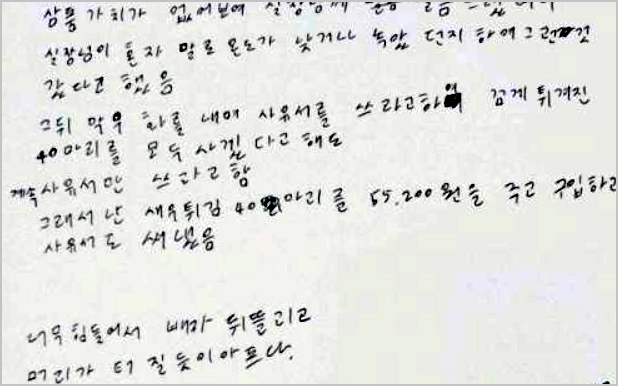 상품 가치가 없어보여 실장님께
실장님이 혼자 말로 온도가 낮거나 녹았 던지 하여 그런 것
같다고 했음
그뒤 막우 화를 내며 사유서를 쓰라고하여 꼼게 튀겨진
40마리를 모두 사겠 다고 해도
계속 사유서만 쓰라고 함
그래서 난 새우튀김 40마리를 55,200원을 주고 구입하고
사유서도 써냈음
너무 힘들어서 배가 뒤뜰리고
머리가 터 질듯이아프다.